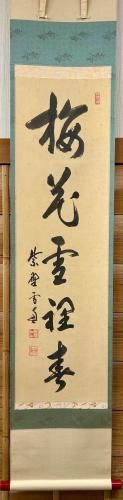 梅花雪裡春
紫野